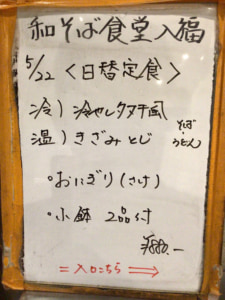 和そば食堂入福
5/22 <日替定食>
冷) 冷やしタヌキ風
温) きざみとじ
そば
・
うどん
・おにぎり(さけ)
・小鉢 2品付
¥880.—
=入口こちら⇒